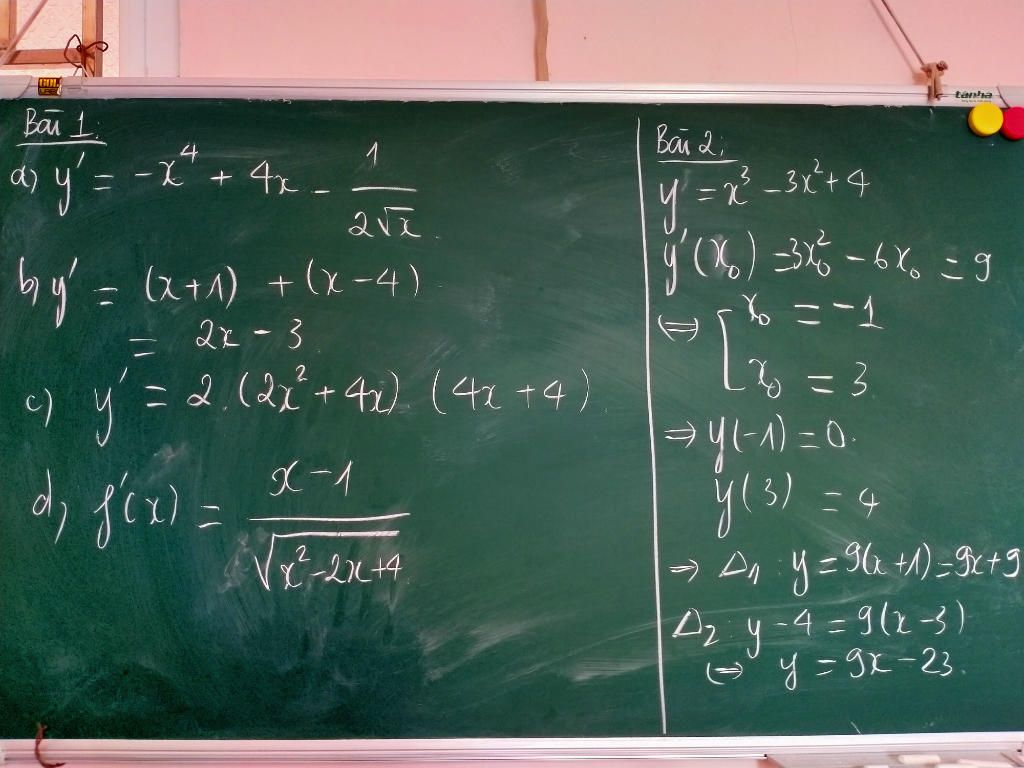 Bài 1:
a) y' = -x⁴ + 4x - 1/(2√x).
b) y' = (x+1) + (x-4)
= 2x - 3.
c) y' = 2.(2x² + 4x) (4x + 4).
d) f'(x) = (x-1)/√(x²-2x+4)
Bài 2:
y' = x³ - 3x² + 4
y'(x₀) = 3x₀² - 6x₀ = 9
⇔ [ x₀ = -1
x₀ = 3.
⇒ y(-1) = 0.
y(3) = 4
⇒ Δ₁: y = 9(x+1) = 9x + 9
Δ₂: y - 4 = 9(x-3)
⇔ y = 9x - 23.
tanha